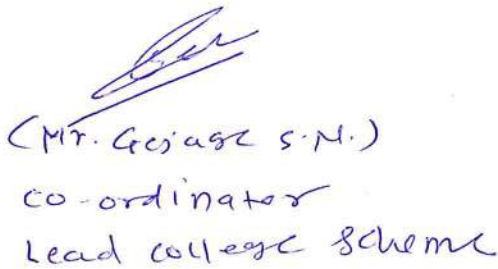 (Mr. Gejage S.M.)
co-ordinator
Lead college Scheme